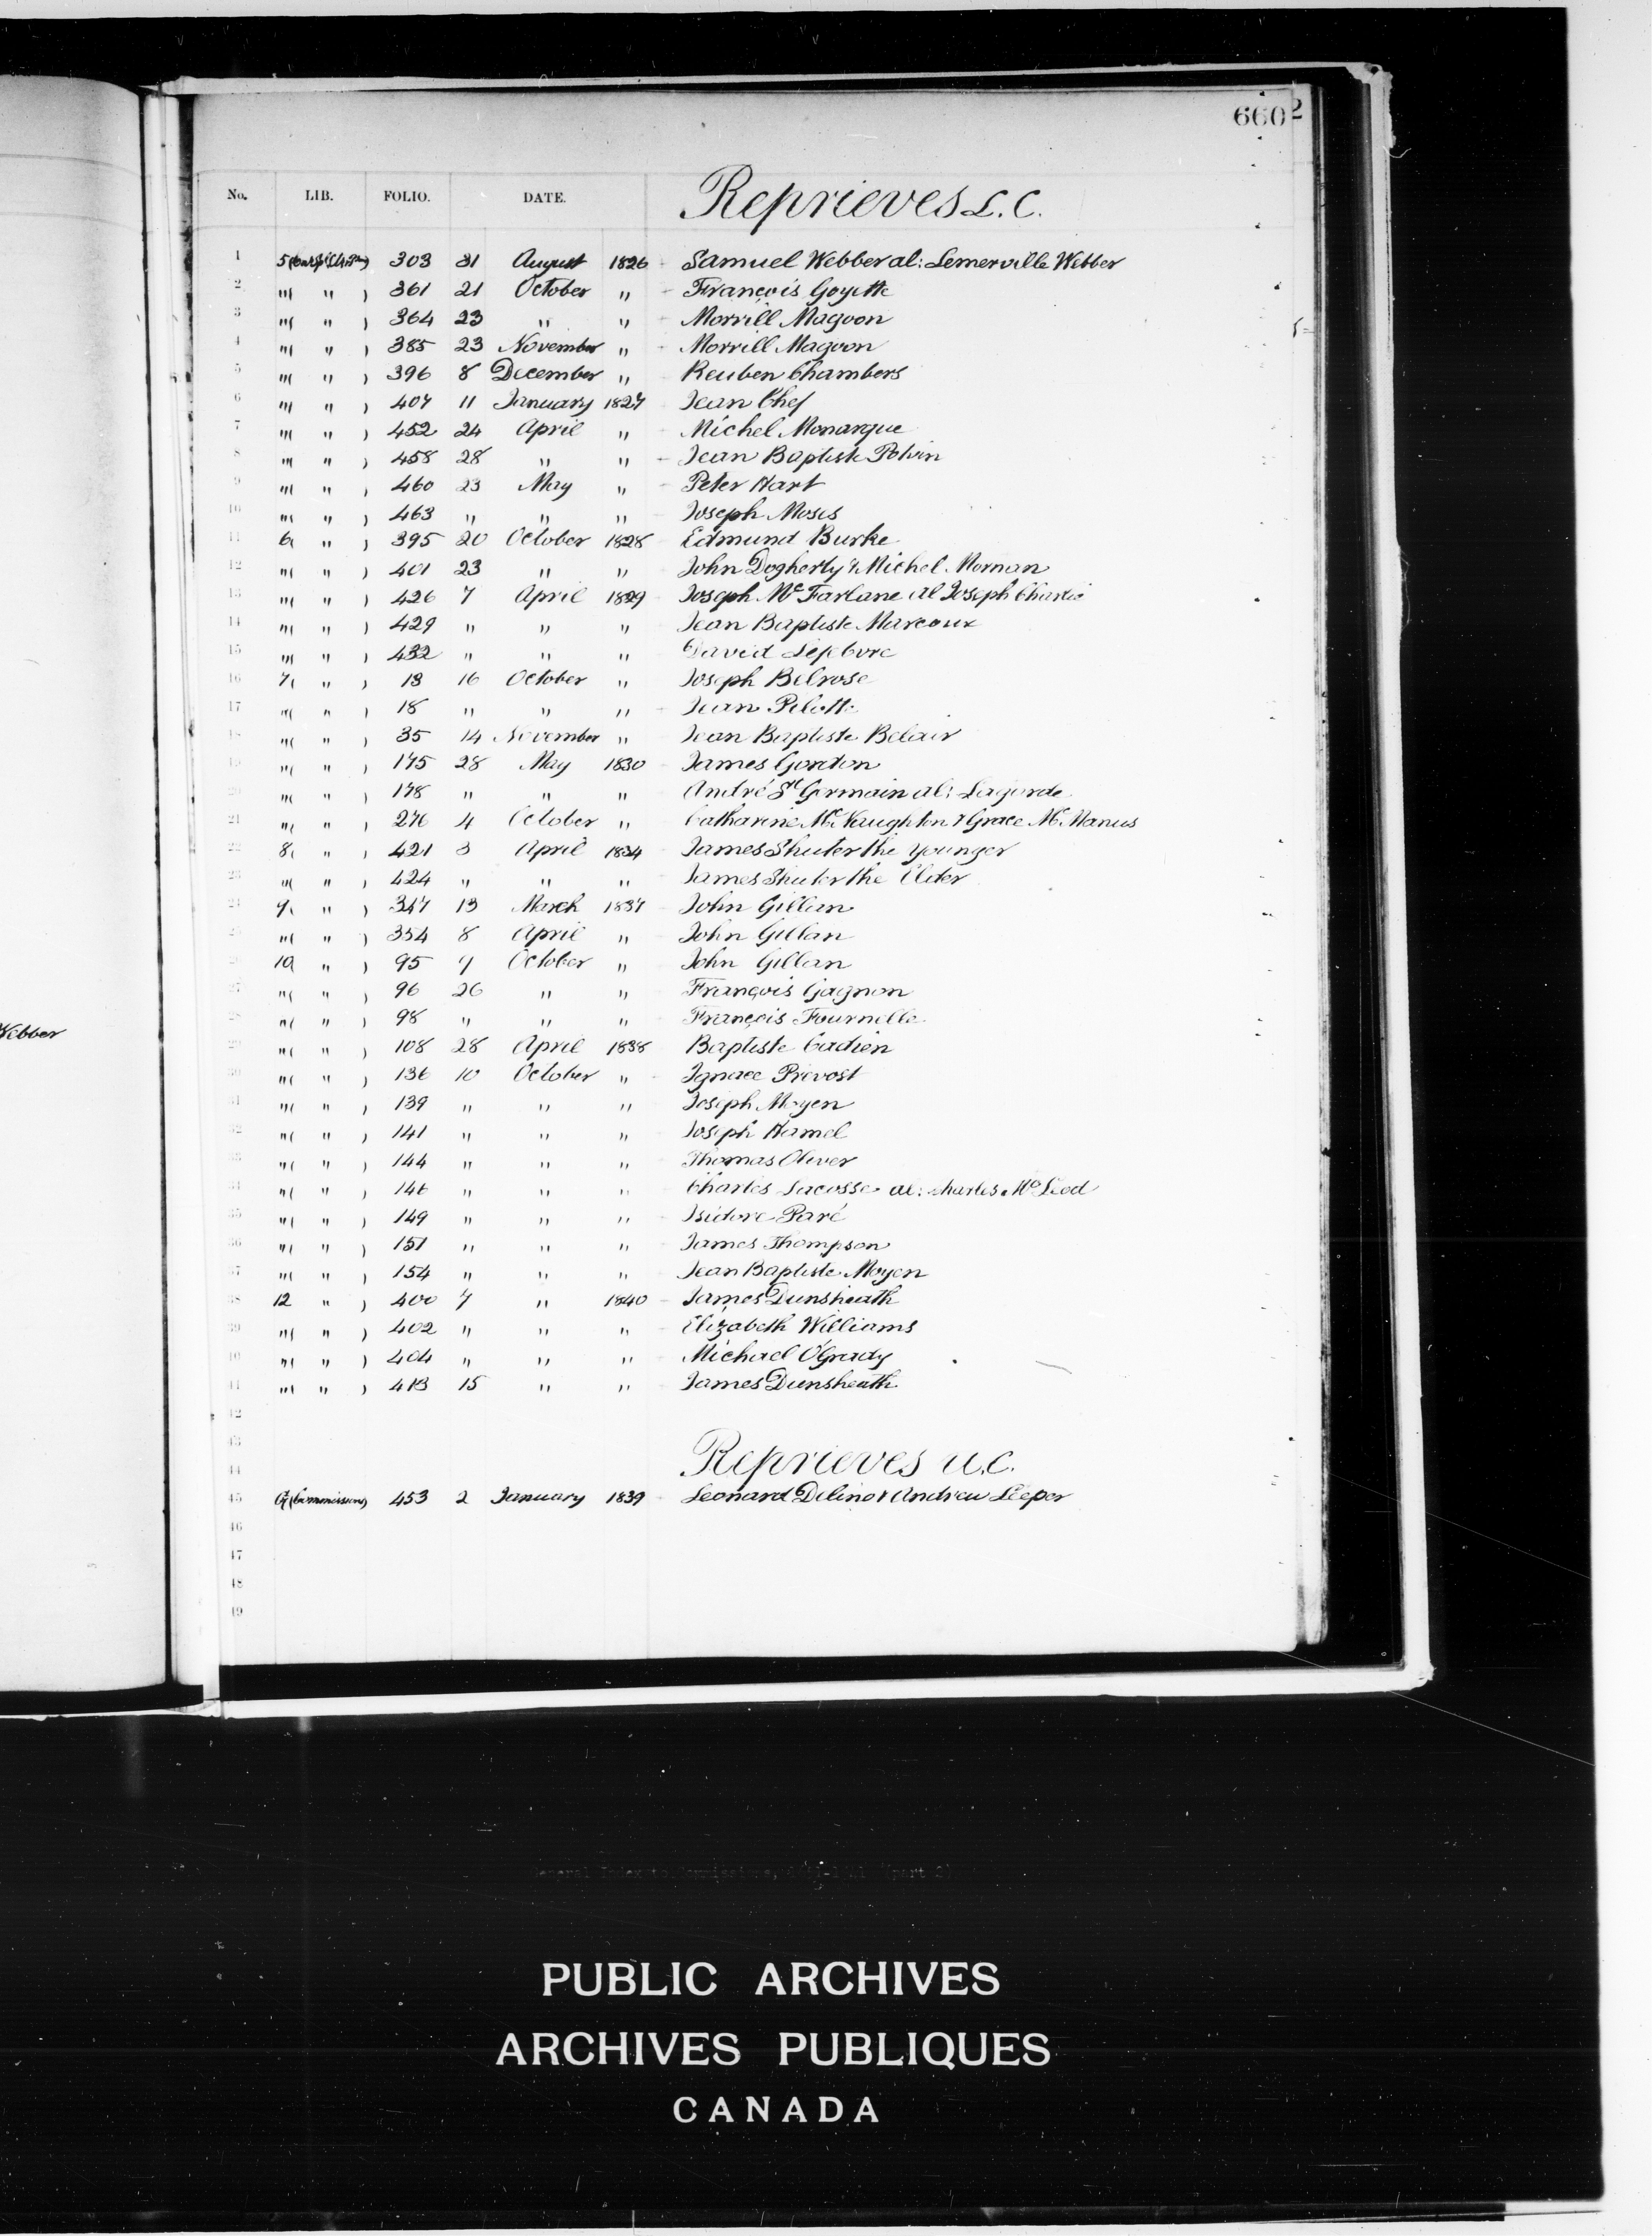 660 2
No. LIB. FOLIO. DATE. Reprieves L.C.
1 5 303 31 August 1826 Samuel Webber al: Lemerville Webber
2 " ( " ) 361 21 October " François Goyette
3 " ( " ) 364 23 " " Morrill Magoon
4 " ( " ) 385 23 November " Morrill Magoon
5 " ( " ) 396 8 December " Reuben Chambers
6 " ( " ) 407 11 January 1827 Jean Chef
7 " ( " ) 452 24 April " Michel Monarque
8 " ( " ) 458 28 " " Jean Baptiste Potvin
9 " ( " ) 460 23 May " Peter Hart
10 " ( " ) 463 " " " Joseph Moses
11 6 ( " ) 395 20 October 1828 Edmund Burke
12 " ( " ) 401 23 " " John Dogherty & Michel Mornan
13 " ( " ) 426 7 April 1829 Joseph McFarlane al Joseph Charlie
14 " ( " ) 429 " " " Jean Baptiste Marcoux
15 " ( " ) 432 " " " David Lefebvre
16 7 ( " ) 13 16 October " Joseph Belrose
17 " ( " ) 18 " " " Jean Pilotte
18 " ( " ) 35 14 November " Jean Baptiste Belair
19 " ( " ) 175 28 May 1830 James Gordon
20 " ( " ) 178 " " " André St Germain al: Lagorde
21 " ( " ) 276 4 October " Catharine McNaughton & Grace McManus
22 8 ( " ) 421 3 April 1834 James Shuter the Younger
23 " ( " ) 424 " " " James Shuter the Elder
24 9 ( " ) 347 13 March 1837 John Gillan
25 " ( " ) 354 8 April " John Gillan
26 10 ( " ) 95 9 October " John Gillan
27 " ( " ) 96 26 " " François Gagnon
28 " ( " ) 98 " " " François Fournelle
29 " ( " ) 108 28 April 1838 Baptiste Cadien
30 " ( " ) 136 10 October " Ignace Prevost
31 " ( " ) 139 " " " Joseph Moyen
32 " ( " ) 141 " " " Joseph Hamel
33 " ( " ) 144 " " " Thomas Oliver
34 " ( " ) 146 " " " Charles Lacosse al: Charles McLeod
35 " ( " ) 149 " " " Isidore Paré
36 " ( " ) 151 " " " James Thompson
37 " ( " ) 154 " " " Jean Baptiste Moyen
38 12 " ) 400 7 " 1840 James Dunsheath
39 " ( " ) 402 " " " Elizabeth Williams
40 " ( " ) 404 " " " Michael O'Grady
41 " ( " ) 413 15 " " James Dunsheath
42
43
44 Reprieves U.C.
45 G (Commissions) 453 2 January 1839 Leonard Delino & Andrew Leeper
46
47
48
49
Webber
General Index to Commissions, (part 2)
PUBLIC ARCHIVES
ARCHIVES PUBLIQUES
CANADA